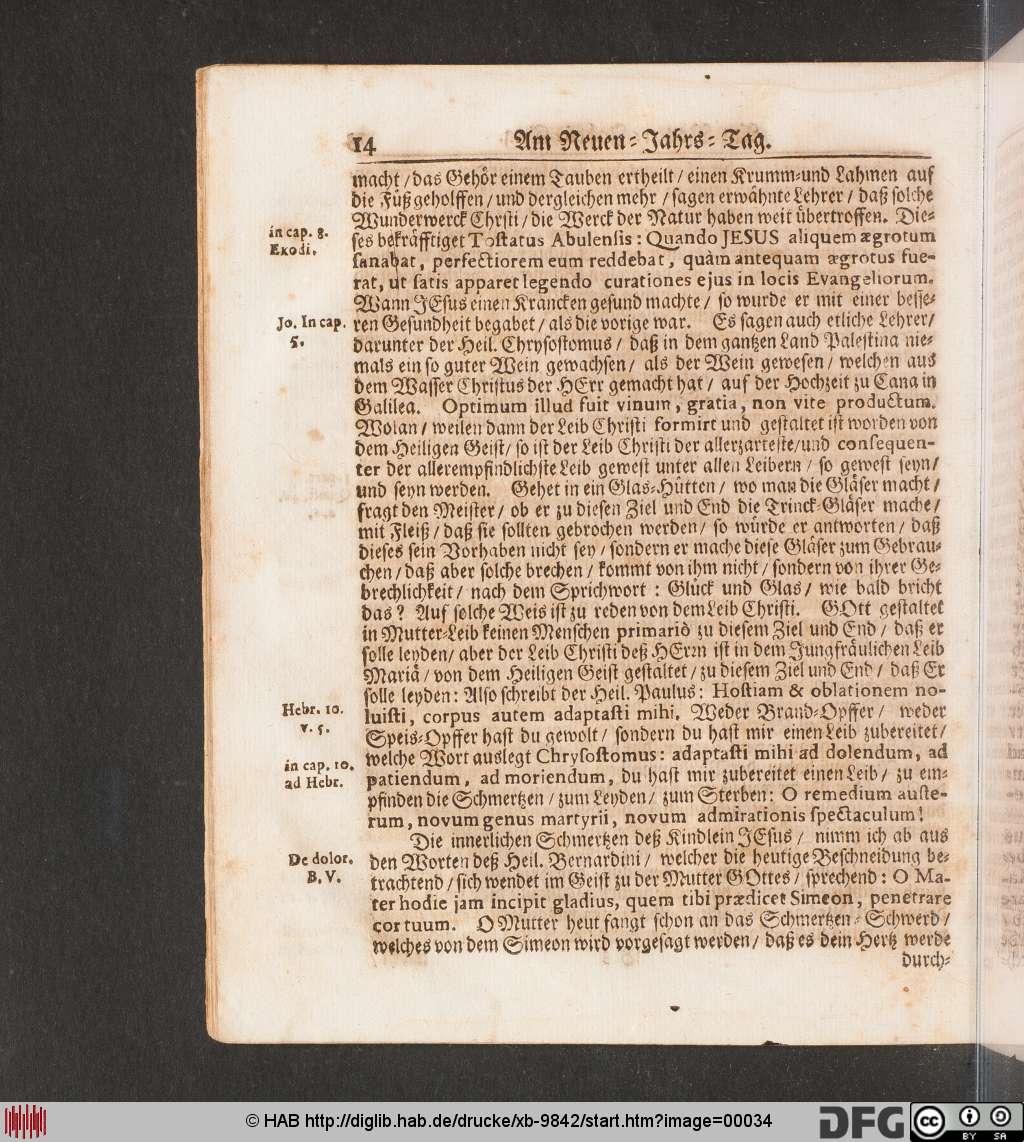 14 Am Neuen-Jahrs-Tag.
macht / das Gehör einem Tauben ertheilt / einen Krumm-und Lahmen auf
die Füß geholffen / und dergleichen mehr / sagen erwähnte Lehrer / daß solche
Wunderwerck Christi / die Werck der Natur haben weit übertroffen. Die-
in cap. 8.
Exodi.
ses bekräfftiget Tostatus Abulensis : Quando JESUS aliquem ægrotum
sanabat, perfectiorem eum reddebat, quàm antequam ægrotus fue-
rat, ut satis apparet legendo curationes ejus in locis Evangeliorum.
Wann JEsus einen Krancken gesund machte / so wurde er mit einer besse-
Jo. In cap.
5.
ren Gesundheit begabet / als die vorige war. Es sagen auch etliche Lehrer /
darunter der Heil. Chrysostomus / daß in dem gantzen Land Palestina nie-
mals ein so guter Wein gewachsen / als der Wein gewesen / welchen aus
dem Wasser Christus der HErr gemacht hat / auf der Hochzeit zu Cana in
Galilea. Optimum illud fuit vinum, gratia, non vite productum.
Wolan / weilen dann der Leib Christi formirt und gestaltet ist worden von
dem Heiligen Geist / so ist der Leib Christi der allerzarteste / und consequen-
ter der allerempfindlichste Leib gewest unter allen Leibern / so gewest seyn /
und seyn werden. Gehet in ein Glas-Hütten / wo man die Gläser macht /
fragt den Meister / ob er zu diesen Ziel und End die Trinck-Gläser mache /
mit Fleiß / daß sie sollten gebrochen werden / so würde er antworten / daß
dieses sein Vorhaben nicht sey / sondern er mache diese Gläser zum Gebrau-
chen / daß aber solche brechen / kommt von ihm nicht / sondern von ihrer Ge-
brechlichkeit / nach dem Sprichwort : Glück und Glas / wie bald bricht
das ? Auf solche Weis ist zu reden von dem Leib Christi. GOtt gestaltet
in Mutter-Leib keinen Menschen primariò zu diesem Ziel und End / daß er
solle leyden / aber der Leib Christi deß HErrn ist in dem Jungfräulichen Leib
Mariä / von dem Heiligen Geist gestaltet / zu diesem Ziel und End / daß Er
solle leyden : Also schreibt der Heil. Paulus : Hostiam & oblationem no-
Hebr. 10.
v. 5.
luisti, corpus autem adaptasti mihi. Weder Brand-Opffer / weder
Speis-Opffer hast du gewolt / sondern du hast mir einen Leib zubereitet /
in cap. 10.
ad Hebr.
welche Wort auslegt Chrysostomus : adaptasti mihi ad dolendum, ad
patiendum, ad moriendum, du hast mir zubereitet einen Leib / zu em-
pfinden die Schmertzen / zum Leyden / zum Sterben : O remedium auste-
rum, novum genus martyrii, novum admirationis spectaculum !
Die innerlichen Schmertzen deß Kindlein JEsus / nimm ich ab aus
De dolor.
B. V.
den Worten deß Heil. Bernardini / welcher die heutige Beschneidung be-
trachtend / sich wendet im Geist zu der Mutter GOttes / sprechend : O Ma-
ter hodie jam incipit gladius, quem tibi prædicet Simeon, penetrare
cor tuum. O Mutter heut fangt schon an das Schmertzen-Schwerd /
welches von dem Simeon wird vorgesagt werden / daß es dein Hertz werde
durch-
© HAB http://diglib.hab.de/drucke/xb-9842/start.htm?image=00034
DFG
cc BY SA